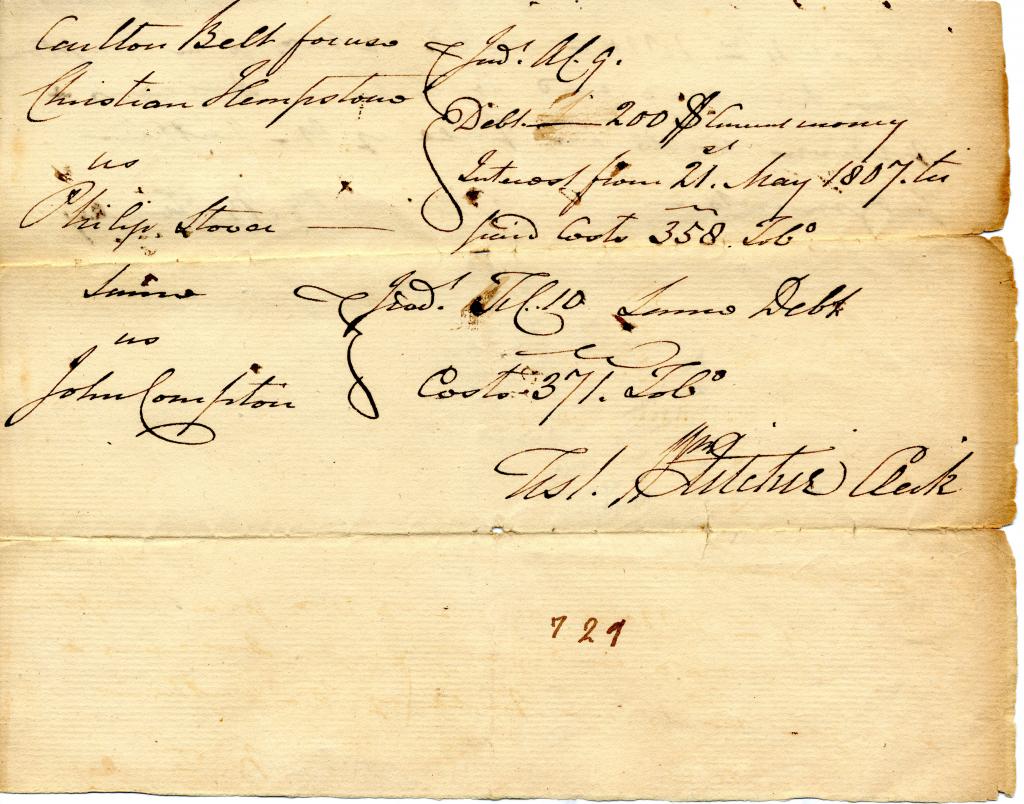 Carlton Belt for use
Christian Hempstone
vs
Philip Stover
Judt. No. 9.
Debt — 200 $ Current money
Interest from 21st. May 1807. till
paid Costs 358 Tobo
Same
vs
John Compton
Judt. No. 10 Same Debt
Costs 371. Tobo
Test. Wm Ritchie Clerk
729